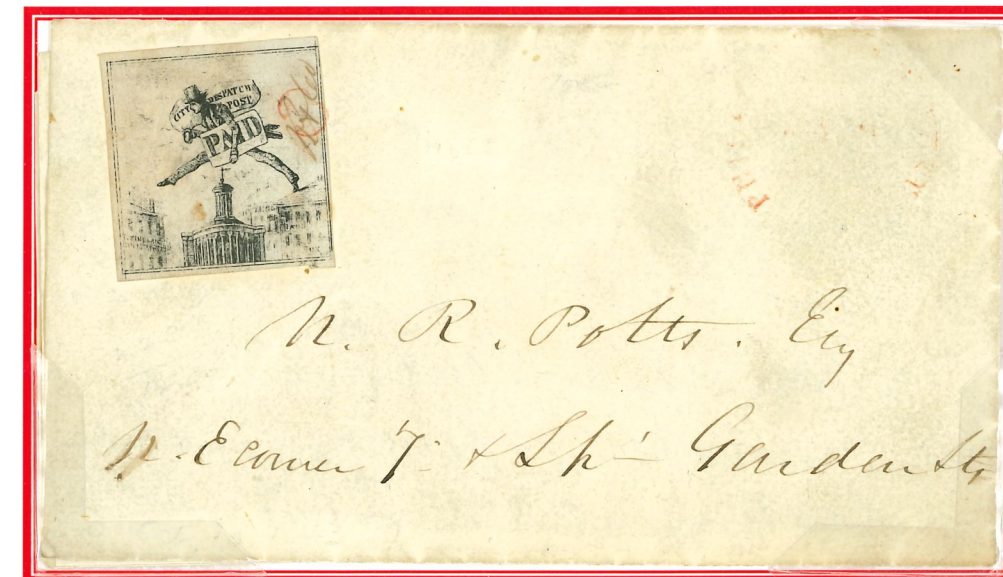 CITY DESPATCH
POST
PAID
N. R. Potts. Esq
N. E corner 7 & Sp Garden Sts